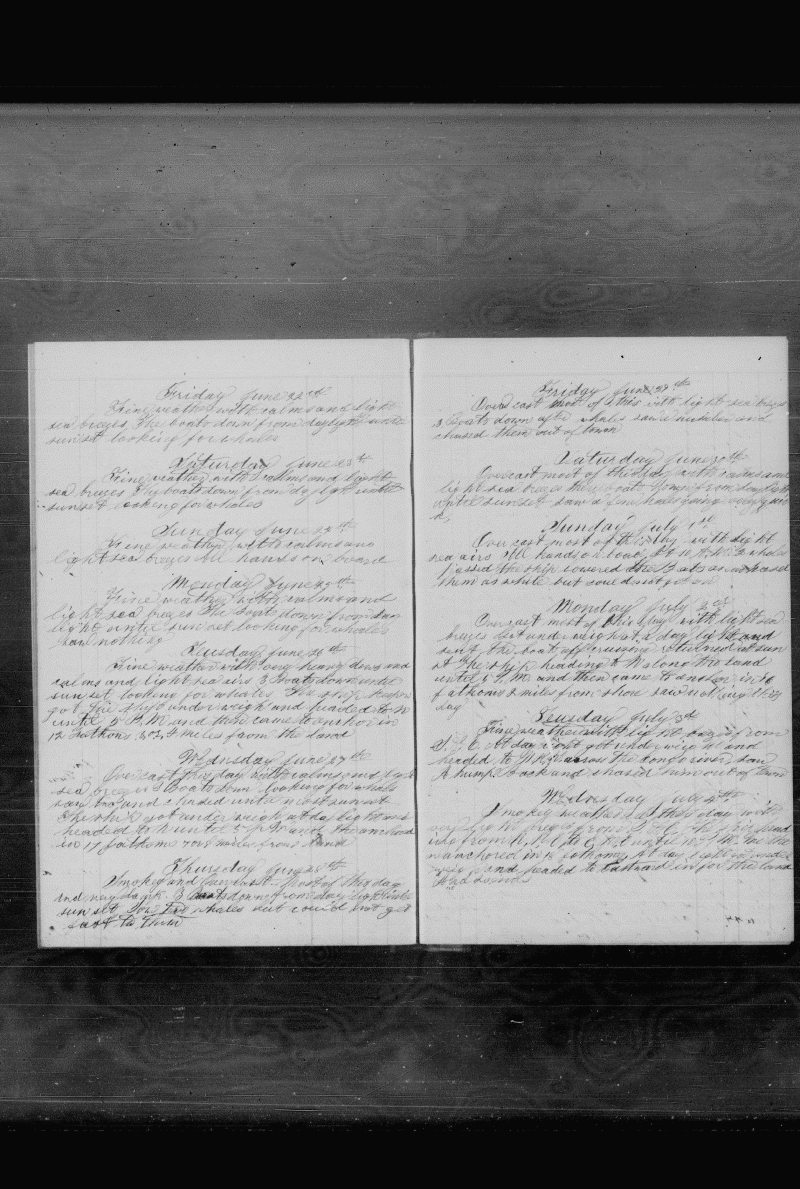 Friday June 22nd
Fine weather with calms and light
sea brezes The boats down from daylight until
sun set looking for whales
Saturday June 23rd
Fine weather with calms and light
sea brezes The boats down from day light until
sun set looking for whales
Sunday June 24th
Fine weather with calms and
light sea brezes All hands on board
Monday June 25th
Fine weather with calms and
light sea brezes The boats down from day
light untill sun set looking for whales
saw nothing
Tuesday June 26th
Fine weather with very heavy dews and
calms and light sea airs 3 boats down until
sun set looking for whales The ship keeper
got the ship under weigh and headed to N
until 5 P.M and then came to anchor in
12 fathoms 3 or 4 miles from the land
Wedensday June 27th
Overcast this day with calms and light
sea brezes 3 boats down looking for whales
saw two and chased until most sunset
The ship got under weigh at day light and
headed to N until 5 P.M and then anchored
in 17 fathoms 7 or 8 miles from land
Thursday June 28th
Smokey and Overcast Most of this day
and very dark 3 boats down from day light until
sun set Saw Two whales but could not get
fast to Them
Friday June 29th
Over cast most of this with light sea brezes
3 boats down after whales saw a number and
chased them out of town
Saturday June 30th
Overcast most of this day with calms and
light sea brezes the boats down from day light
until sunset saw a few whales going
Sunday July 1st
Over cast most of the day with light
sea airs All hands on board At 10 A.M. 2 whales
passed the ship lowered the Boats and chased
them as while but could not get on
Monday July 2nd
Overcast most of this day with light sea
brezes Got under weigh at day light and
sent the boats off cruising returned at sun
set The ship heading to N along the land
until 5 P.M and then came to anchor in 16
fathoms 8 miles from shore saw nothing this
day
Tuesday July 3rd
Fine weather with light brezes from
S.S.E. At day light got under weigh and
headed to N.N.E across the Congo river saw
A hump back and chased him out of town
Wednesday July 4th
Smokey weather all this day with
very light brezes from S.S.E. The ship head
ing from N.
anchored in 15 fathoms At day light got under
weigh and headed to Eastward in for the land